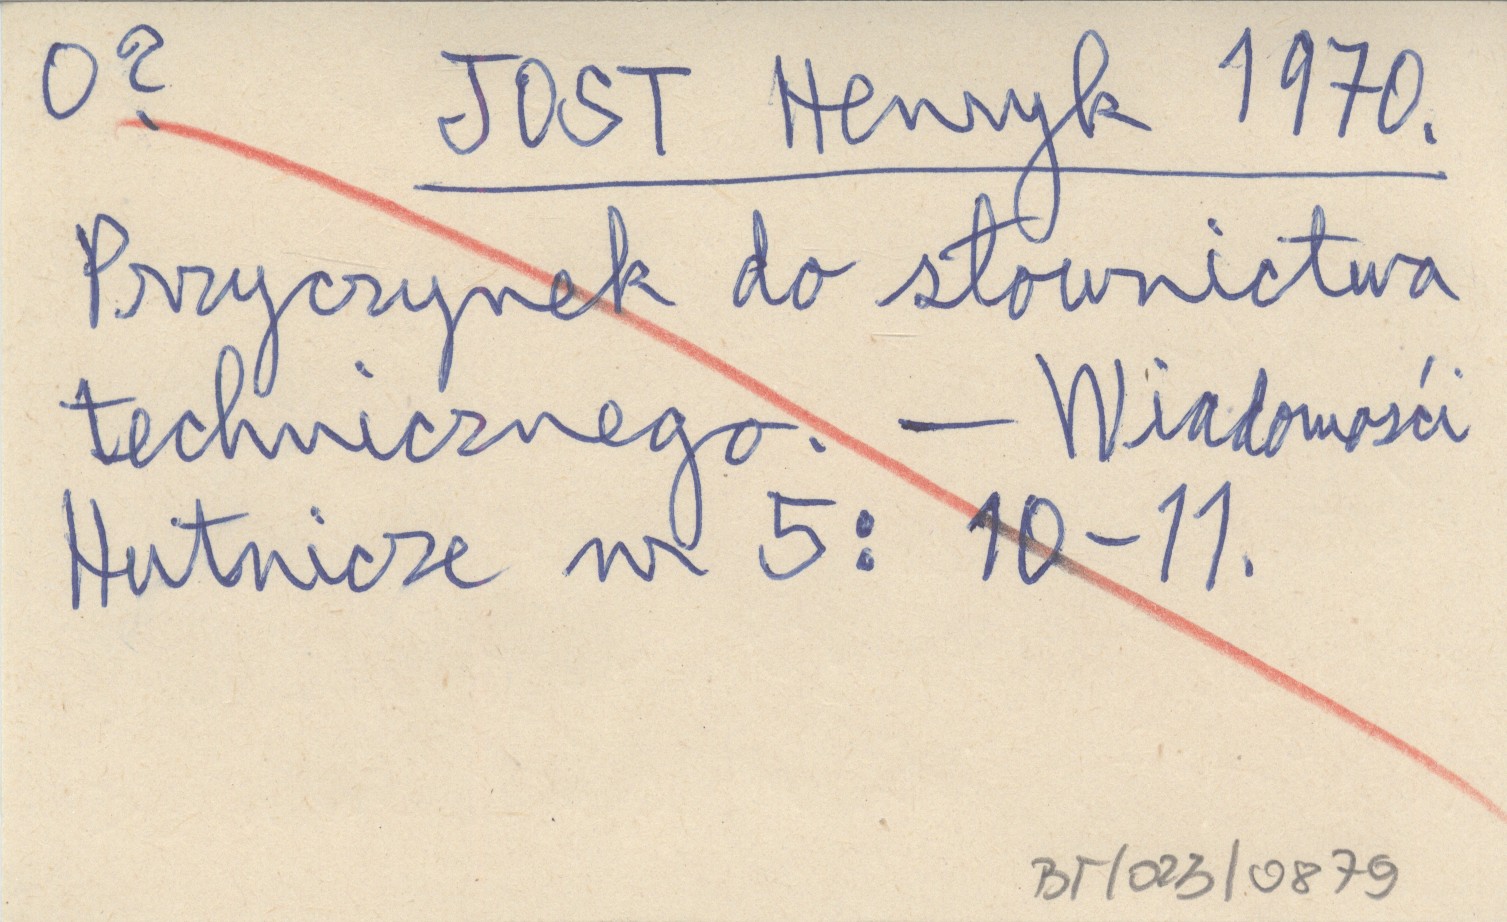 0? JOST Henryk 1970.
Przyczynek do słownictwa
technicznego. — Wiadomości
Hutnicze nr 5: 10-11.
BT/023/0879